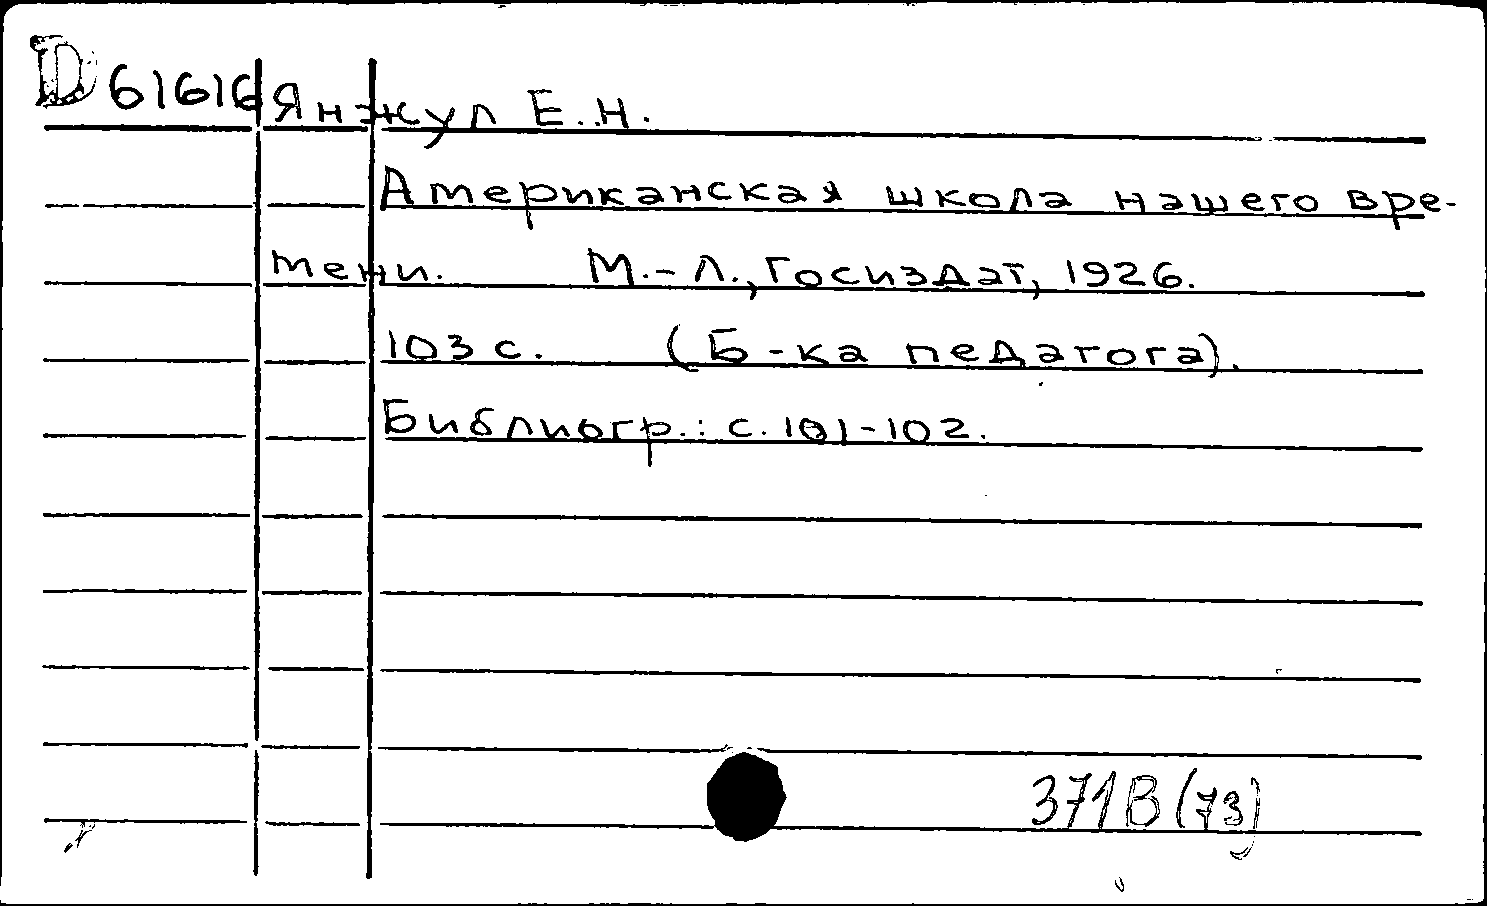 D61616 Янжул Е.Н.
Американская школа нашего вре-
мени. М.-Л., Госиздат, 1926.
103 с. (Б-ка педагога).
Библиогр.: с. 101-102.
371В(73)